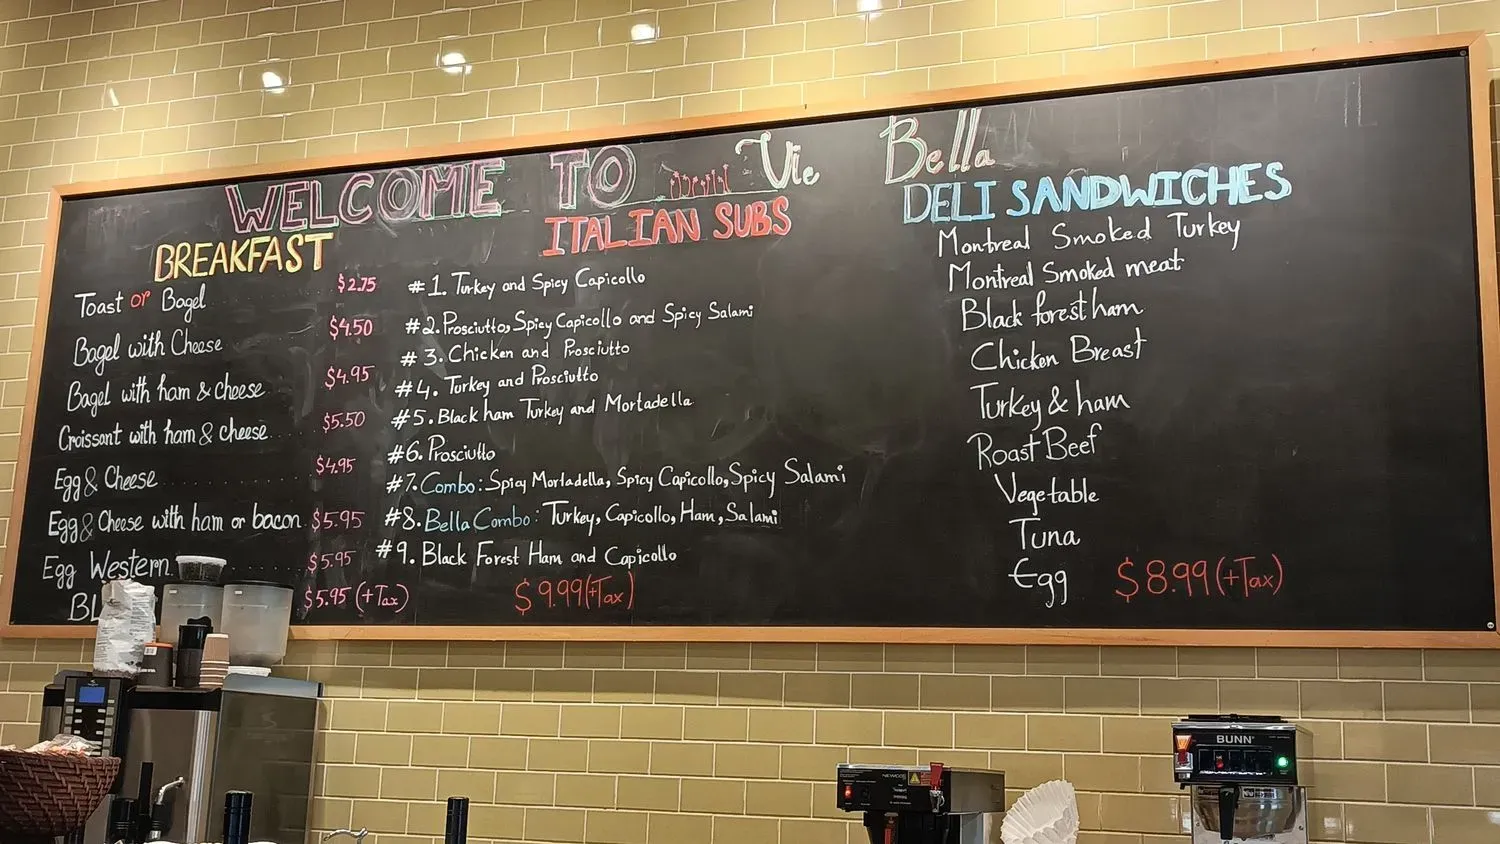 WELCOME TO Vie Bella
BREAKFAST
Toast or Bagel $2.75
Bagel with Cheese $4.50
Bagel with ham & cheese $4.95
Croissant with ham & cheese $5.50
Egg & Cheese $4.95
Egg & Cheese with ham or bacon $5.95
Egg Western $5.95
BL $5.95 (+Tax)
ITALIAN SUBS
#1. Turkey and Spicy Capicollo
#2. Prosciutto, Spicy Capicollo and Spicy Salami
#3. Chicken and Prosciutto
#4. Turkey and Prosciutto
#5. Black ham Turkey and Mortadella
#6. Prosciutto
#7. Combo: Spicy Mortadella, Spicy Capicollo, Spicy Salami
#8. Bella Combo: Turkey, Capicollo, Ham, Salami
#9. Black Forest Ham and Capicollo
$9.99 (+Tax)
DELI SANDWICHES
Montreal Smoked Turkey
Montreal Smoked meat
Black forest ham
Chicken Breast
Turkey & ham
Roast Beef
Vegetable
Tuna
Egg $8.99 (+Tax)
NEWCO
BUNN